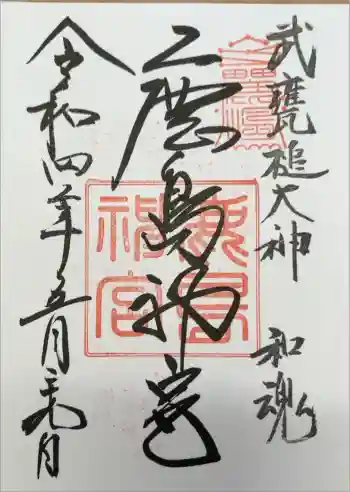 武甕槌大神 和魂
鹿島神宮
令和四年五月
鹿島神宮